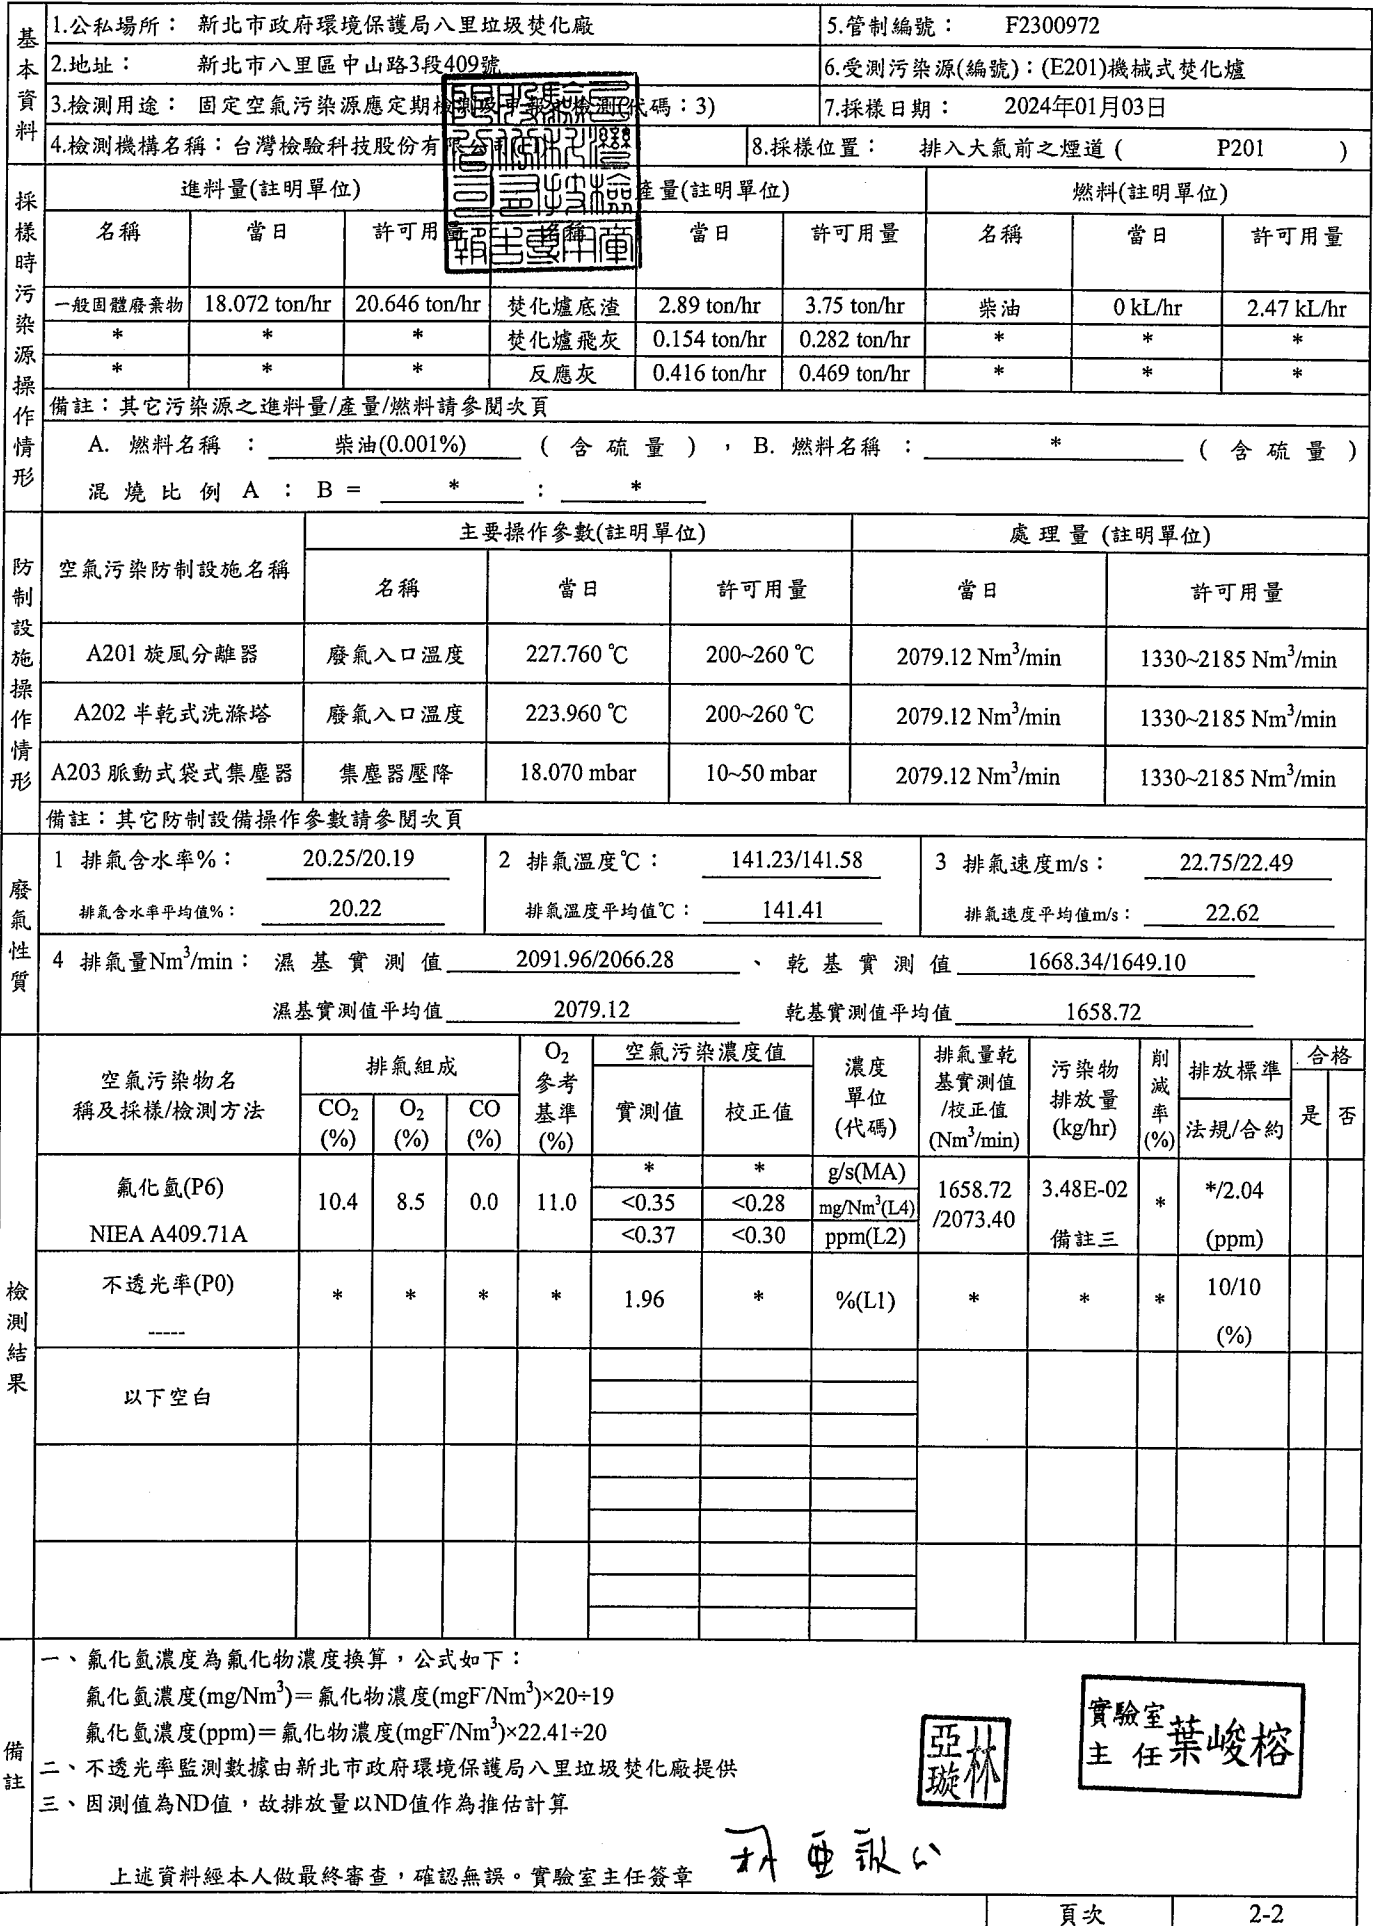 基本資料
1.公私場所： 新北市政府環境保護局八里垃圾焚化廠 5.管制編號： F2300972
2.地址： 新北市八里區中山路3段409號 6.受測污染源(編號)：(E201)機械式焚化爐
3.檢測用途： 固定空氣污染源應定期檢測及申報之檢測(代碼：3) 7.採樣日期： 2024年01月03日
4.檢測機構名稱：台灣檢驗科技股份有限公司 8.採樣位置： 排入大氣前之煙道 ( P201 )
採樣時污染源操作情形
進料量(註明單位) 產量(註明單位) 燃料(註明單位)
名稱 當日 許可用量 名稱 當日 許可用量 名稱 當日 許可用量
一般固體廢棄物 18.072 ton/hr 20.646 ton/hr 焚化爐底渣 2.89 ton/hr 3.75 ton/hr 柴油 0 kL/hr 2.47 kL/hr
* * * 焚化爐飛灰 0.154 ton/hr 0.282 ton/hr * * *
* * * 反應灰 0.416 ton/hr 0.469 ton/hr * * *
備註：其它污染源之進料量/產量/燃料請參閱次頁
A. 燃料名稱 ： 柴油(0.001%) ( 含 硫 量 ) ，B. 燃料名稱 ： * ( 含 硫 量 )
混 燒 比 例 A ： B = * ： *
防制設施操作情形
空氣污染防制設施名稱 主要操作參數(註明單位) 處理量 (註明單位)
名稱 當日 許可用量 當日 許可用量
A201 旋風分離器 廢氣入口溫度 227.760 ℃ 200~260 ℃ 2079.12 Nm³/min 1330~2185 Nm³/min
A202 半乾式洗滌塔 廢氣入口溫度 223.960 ℃ 200~260 ℃ 2079.12 Nm³/min 1330~2185 Nm³/min
A203 脈動式袋式集塵器 集塵器壓降 18.070 mbar 10~50 mbar 2079.12 Nm³/min 1330~2185 Nm³/min
備註：其它防制設備操作參數請參閱次頁
廢氣性質
1 排氣含水率%： 20.25/20.19 2 排氣溫度℃： 141.23/141.58 3 排氣速度m/s： 22.75/22.49
排氣含水率平均值%： 20.22 排氣溫度平均值℃： 141.41 排氣速度平均值m/s： 22.62
4 排氣量Nm³/min： 濕 基 實 測 值 2091.96/2066.28 、 乾 基 實 測 值 1668.34/1649.10
濕基實測值平均值 2079.12 乾基實測值平均值 1658.72
檢測結果
空氣污染物名稱及採樣/檢測方法 排氣組成 O₂參考基準(%) 空氣污染濃度值 濃度單位(代碼) 排氣量乾基實測值/校正值(Nm³/min) 污染物排放量(kg/hr) 削減率(%) 排放標準 合格
CO₂(%) O₂(%) CO(%) 實測值 校正值 法規/合約 是 否
氟化氫(P6) NIEA A409.71A 10.4 8.5 0.0 11.0 * * g/s(MA) 1658.72/2073.40 3.48E-02 備註三 * */2.04 (ppm)
<0.35 <0.28 mg/Nm³(L4)
<0.37 <0.30 ppm(L2)
不透光率(P0) ----- * * * * 1.96 * %(L1) * * * 10/10 (%)
以下空白
備註
一、氟化氫濃度為氟化物濃度換算，公式如下：
氟化氫濃度(mg/Nm³)＝氟化物濃度(mgF⁻/Nm³)×20÷19
氟化氫濃度(ppm)＝氟化物濃度(mgF⁻/Nm³)×22.41÷20
二、不透光率監測數據由新北市政府環境保護局八里垃圾焚化廠提供
三、因測值為ND值，故排放量以ND值作為推估計算
林亞璇
實驗室主任 葉峻榕
上述資料經本人做最終審查，確認無誤。實驗室主任簽章
頁次 2-2